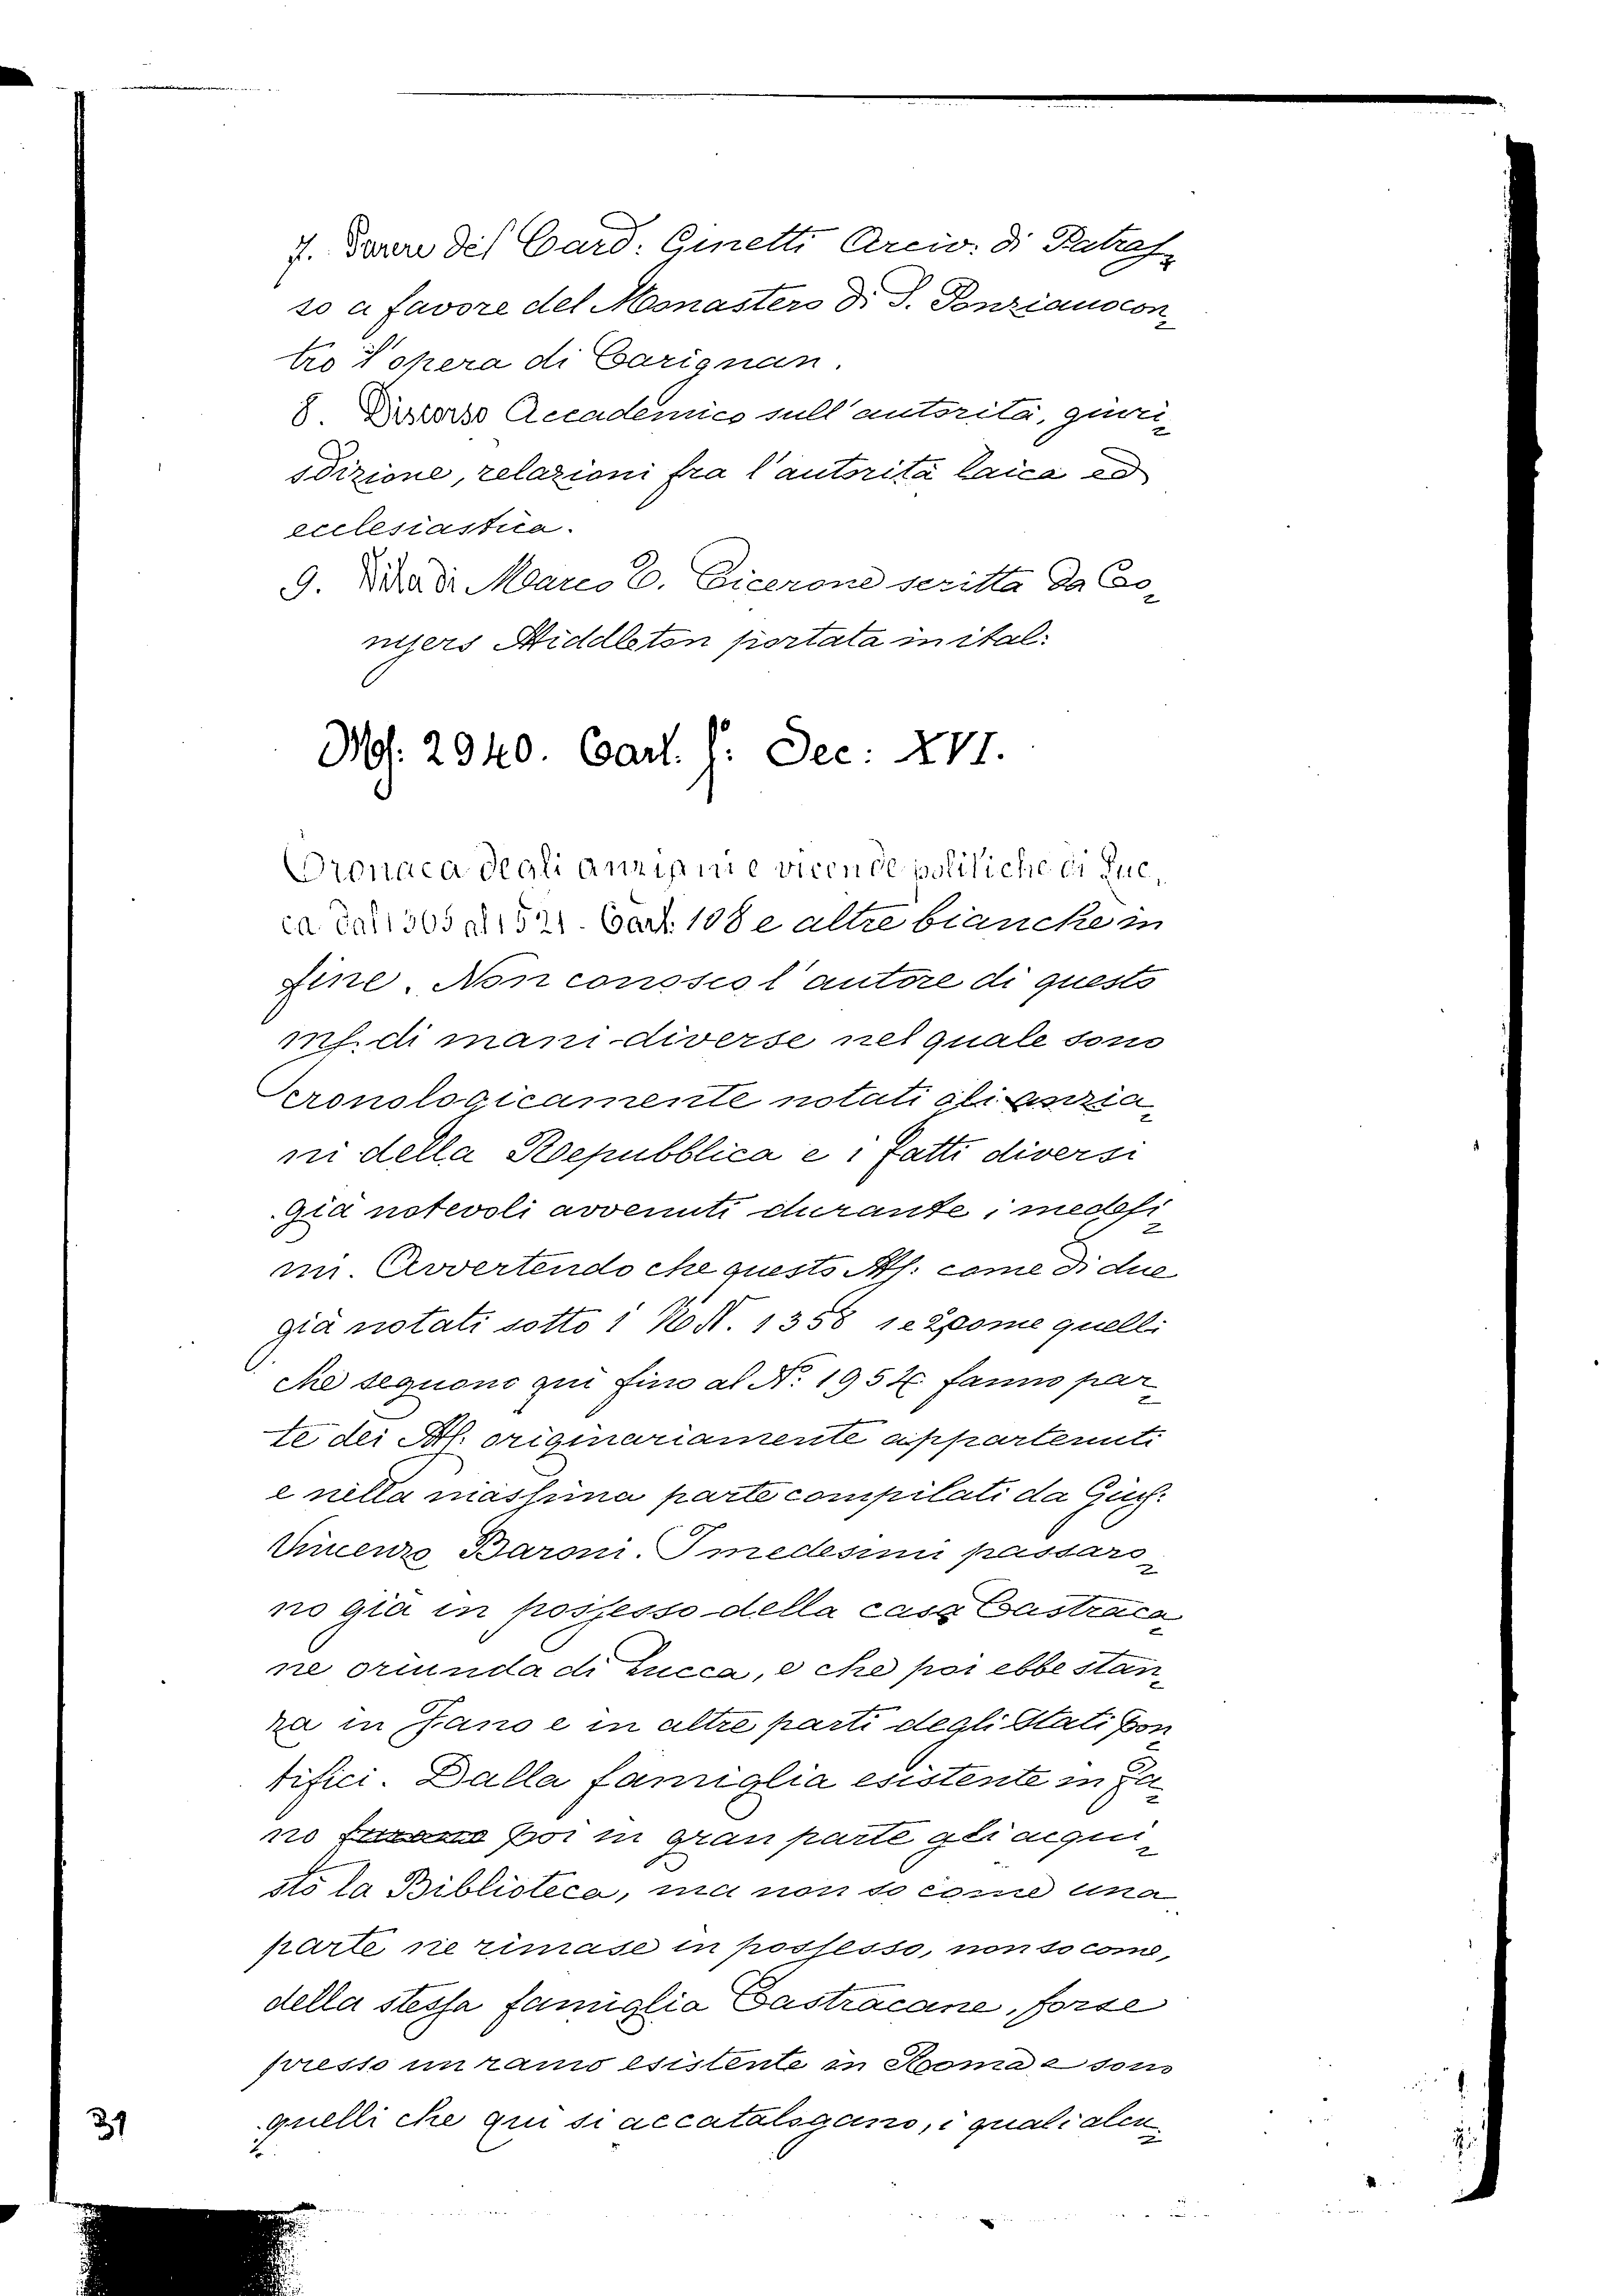 7. Parere del Card: Ginetti Arciv: di Patras=
so a favore del Monastero di S. Ponziano con=
tro l'opera di Carignan.
8. Discorso Accademico sull'autorità, giuri=
sdizione, relazioni fra l'autorità laica ed
ecclesiastica.
9. Vita di Marco C. Cicerone scritta da Co=
nyers Middleton portata in ital:
Ms. 2940. Cart. f: Sec: XVI.
Cronaca degli anziani e vicende politiche di Luc,
ca dal 1305 al 1521. Cart. 108 e altre bianche in
fine. Non conosco l'autore di questo
ms. di mani diverse nel quale sono
cronologicamente notati gli anzia=
ni della Repubblica e i fatti diversi
già notevoli avvenuti durante i medesi=
mi. Avvertendo che questo Ms. come di due
già notati sotto i N. 1358 1e 2 come quelli
che seguono qui fino al N. 1954 fanno par=
te dei Ms. originariamente appartenuti
e nella massima parte compilati da Gius:
Vincenzo Baroni. I medesimi passaro=
no già in possesso della casa Castraca=
ne oriunda di Lucca, e che poi ebbe stan=
za in Fano e in altre parti degli Stati Pon=
tifici. Dalla famiglia esistente in Fa=
no furono poi in gran parte gli acqui=
stò la Biblioteca, ma non so come una
parte ne rimase in possesso, non so come,
della stessa famiglia Castracane, forse
presso un ramo esistente in Roma e sono
quelli che qui si accatalogano, i quali alcu=
31